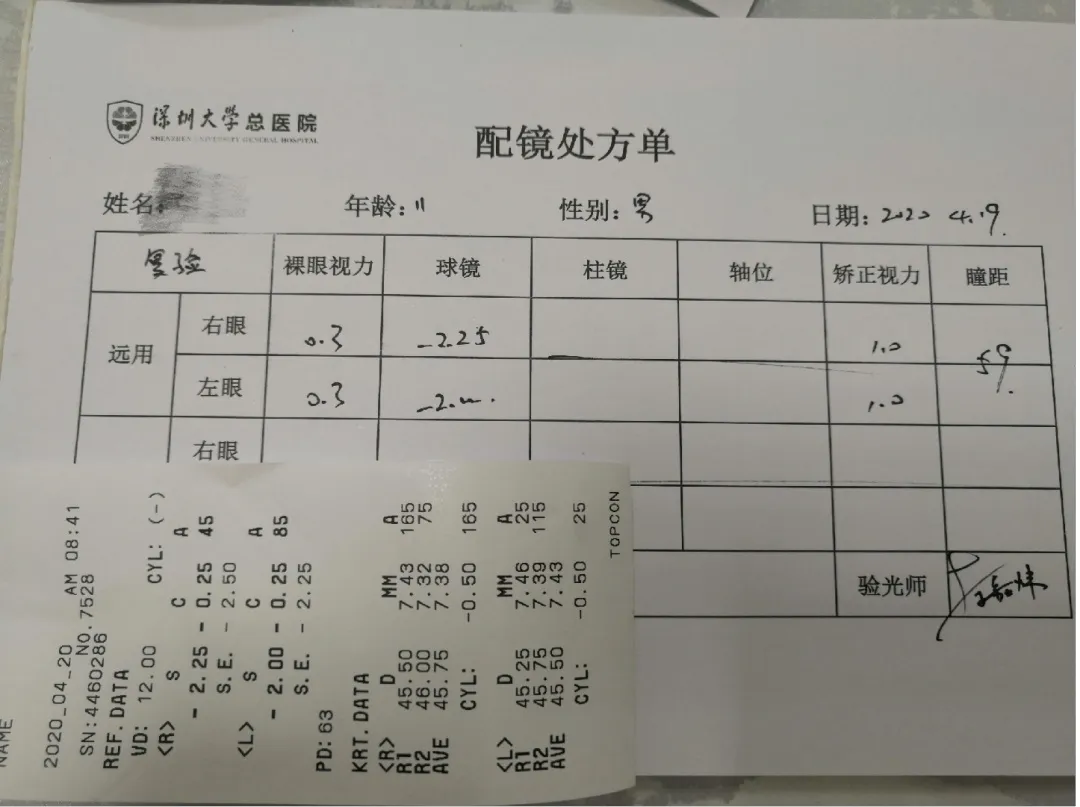 深圳大学总医院
SHENZHEN UNIVERSITY GENERAL HOSPITAL
配镜处方单
姓名: 年龄: 11 性别: 男 日期: 2020 4.19.
复验 裸眼视力 球镜 柱镜 轴位 矫正视力 瞳距
远用 右眼 0.3 -2.25 1.0 59
左眼 0.3 1.0
右眼
验光师
NAME
2020_04_20 AM 08:41
SN:4460286 NO.7528
REF.DATA
VD: 12.00 CYL: (-)
<R> S C A
- 2.25 - 0.25 45
S.E. - 2.50
<L> S C A
- 2.00 - 0.25 85
S.E. - 2.25
PD:63
KRT.DATA
<R> D MM A
R1 45.50 7.43 165
R2 46.00 7.32 75
AVE 45.75 7.38
CYL: -0.50 165
<L> D MM A
R1 45.25 7.46 25
R2 45.75 7.39 115
AVE 45.50 7.43
CYL: -0.50 25
TOPCON